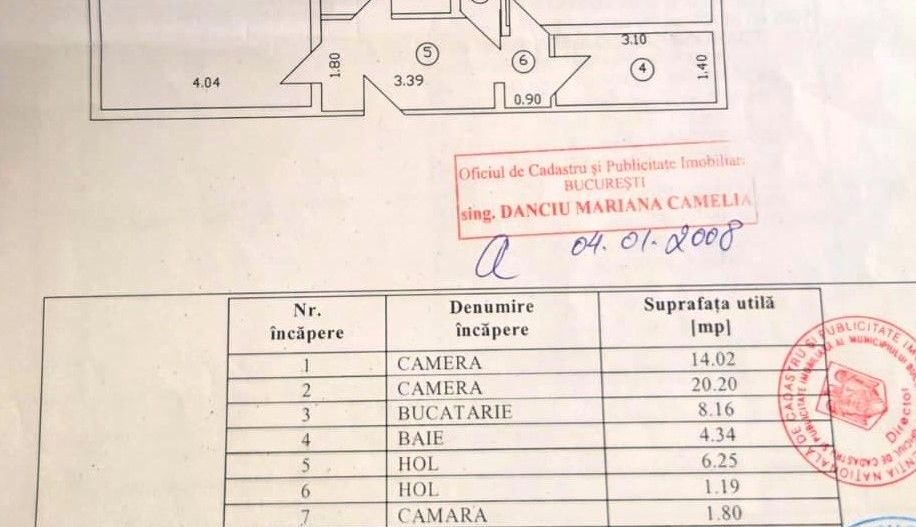 5
6
3.10
4
1.40
1.80
4.04
3.39
0.90
Oficiul de Cadastru și Publicitate Imobiliar
BUCUREȘTI
sing. DANCIU MARIANA CAMELIA
04.01.2008
Nr. încăpere Denumire încăpere Suprafața utilă [mp]
1 CAMERA 14.02
2 CAMERA 20.20
3 BUCATARIE 8.16
4 BAIE 4.34
5 HOL 6.25
6 HOL 1.19
7 CAMARA 1.80
DE CADASTRU ȘI PUBLICITATE
Director